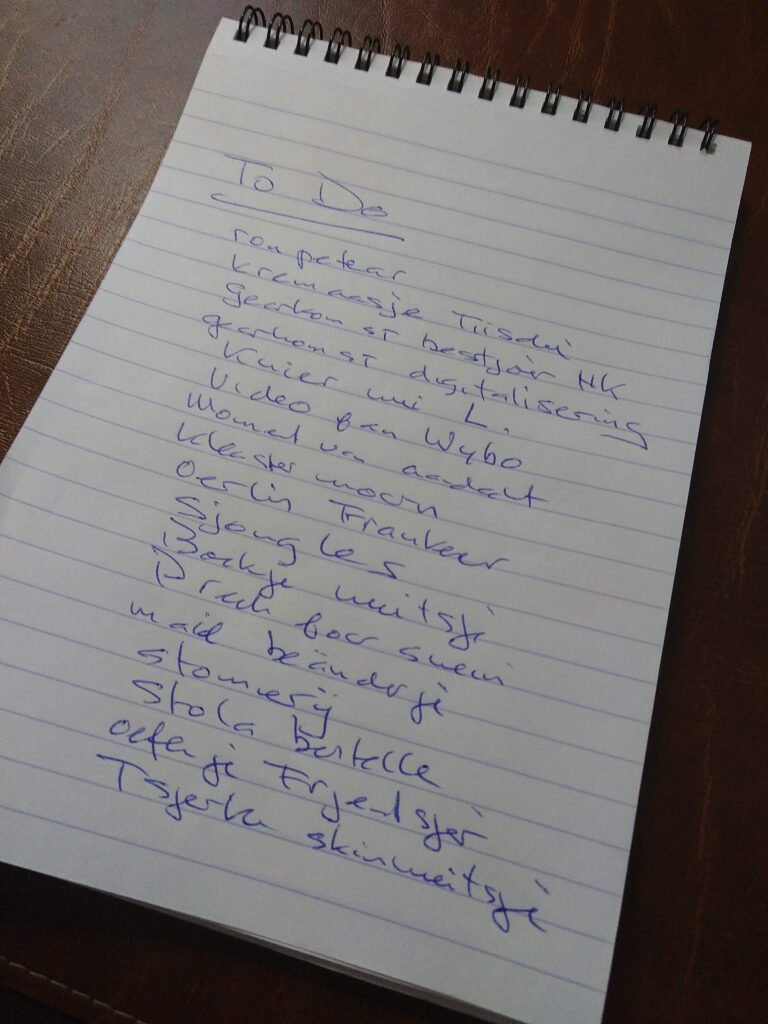 To Do
roupetear
kremaasje Tiisdei
gearkomst bestjoer HK
gearkomst digitalisering
Kuier mei L.
Video fan Wybo
Kleaster moarn
oerlis Franker
Sjongles
Boekje meitsje
Preek foar snein
mail beänderje
stomerij
Stola bestelle
oefenje Frjentsjer
Tsjerke skinmeitsje